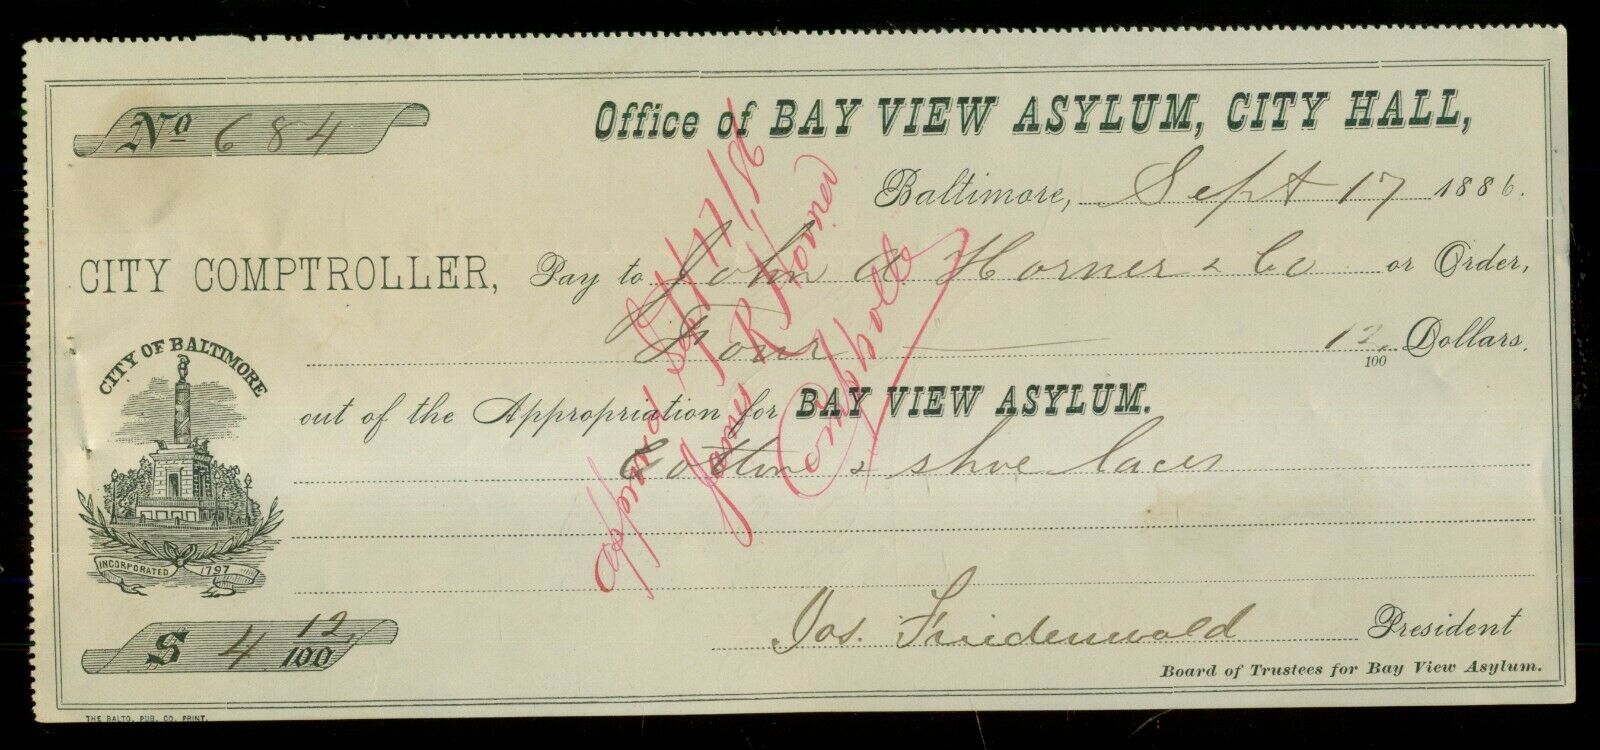 No 684
Office of BAY VIEW ASYLUM, CITY HALL,
Baltimore, Sept 17 1886.
CITY COMPTROLLER, Pay to John A Horner & Co or Order,
Four 12/100 Dollars,
out of the Appropriation for BAY VIEW ASYLUM.
Cotton & shoe laces
CITY OF BALTIMORE
INCORPORATED 1797
$ 4 12/100
Jos. Friedenwald President
Board of Trustees for Bay View Asylum.
THE BALTO. PUB. CO. PRINT.
Approved Sept 17/86
James R Horner
Comptroller